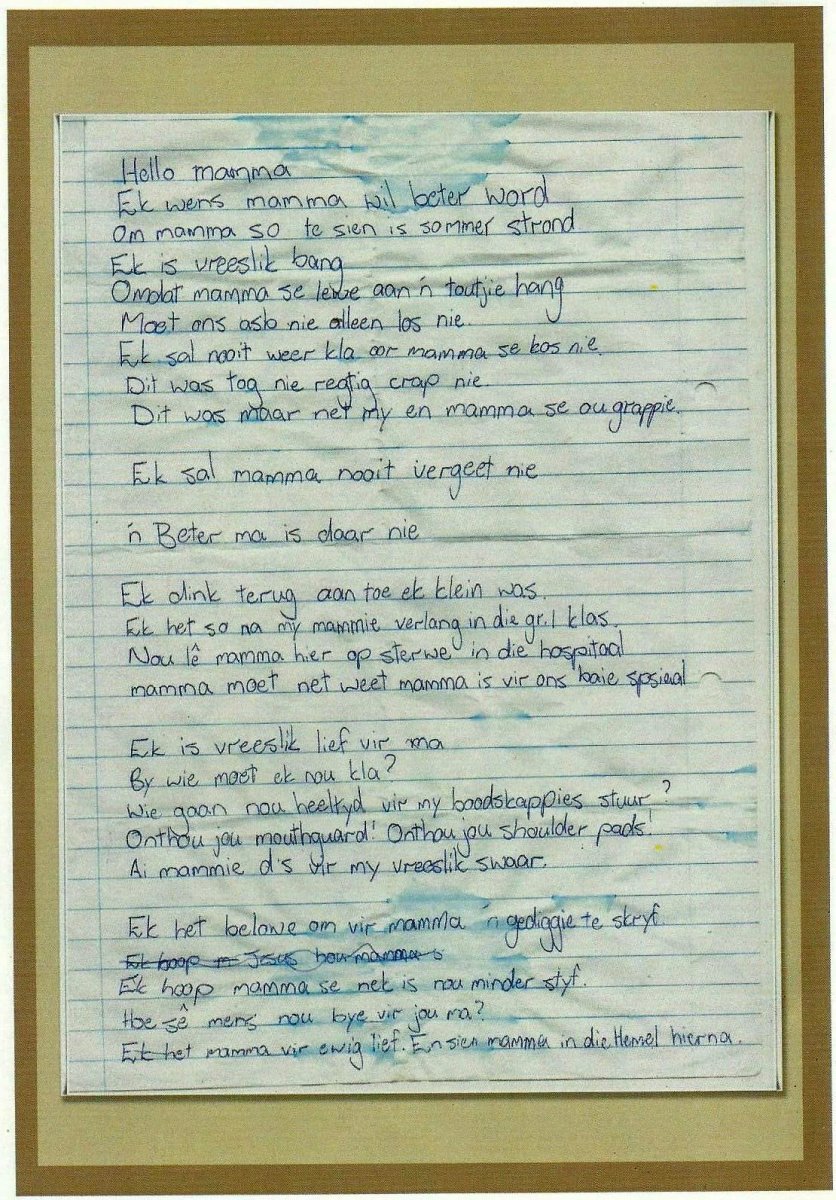 Hello mamma
Ek wens mamma wil beter word
Om mamma so te sien is sommer stront
Ek is vreeslik bang
Omdat mamma se lewe aan 'n toutjie hang
Moet ons asb nie alleen los nie.
Ek sal nooit weer kla oor mamma se kos nie.
Dit was tog nie regtig crap nie.
Dit was maar net my en mamma se ou grappie.
Ek sal mamma nooit vergeet nie
'n Beter ma is daar nie
Ek dink terug aan toe ek klein was.
Ek het so na my mammie verlang in die gr.1 klas.
Nou lê mamma hier op sterwe in die hospitaal
mamma moet net weet mamma is vir ons baie spesiaal
Ek is vreeslik lief vir ma
By wie moet ek nou kla?
Wie gaan nou heeltyd vir my boodskappies stuur?
Onthou jou mouthguard! Onthou jou shoulder pads!
Ai mammie d's vir my vreeslik swaar.
Ek het belowe om vir mamma 'n gediggie te skryf.
Ek hoop Jesus hou mamma s
Ek hoop mamma se nek is nou minder styf.
Hoe sê mens nou bye vir jou ma?
Ek het mamma vir ewig lief. En sien mamma in die Hemel hierna.